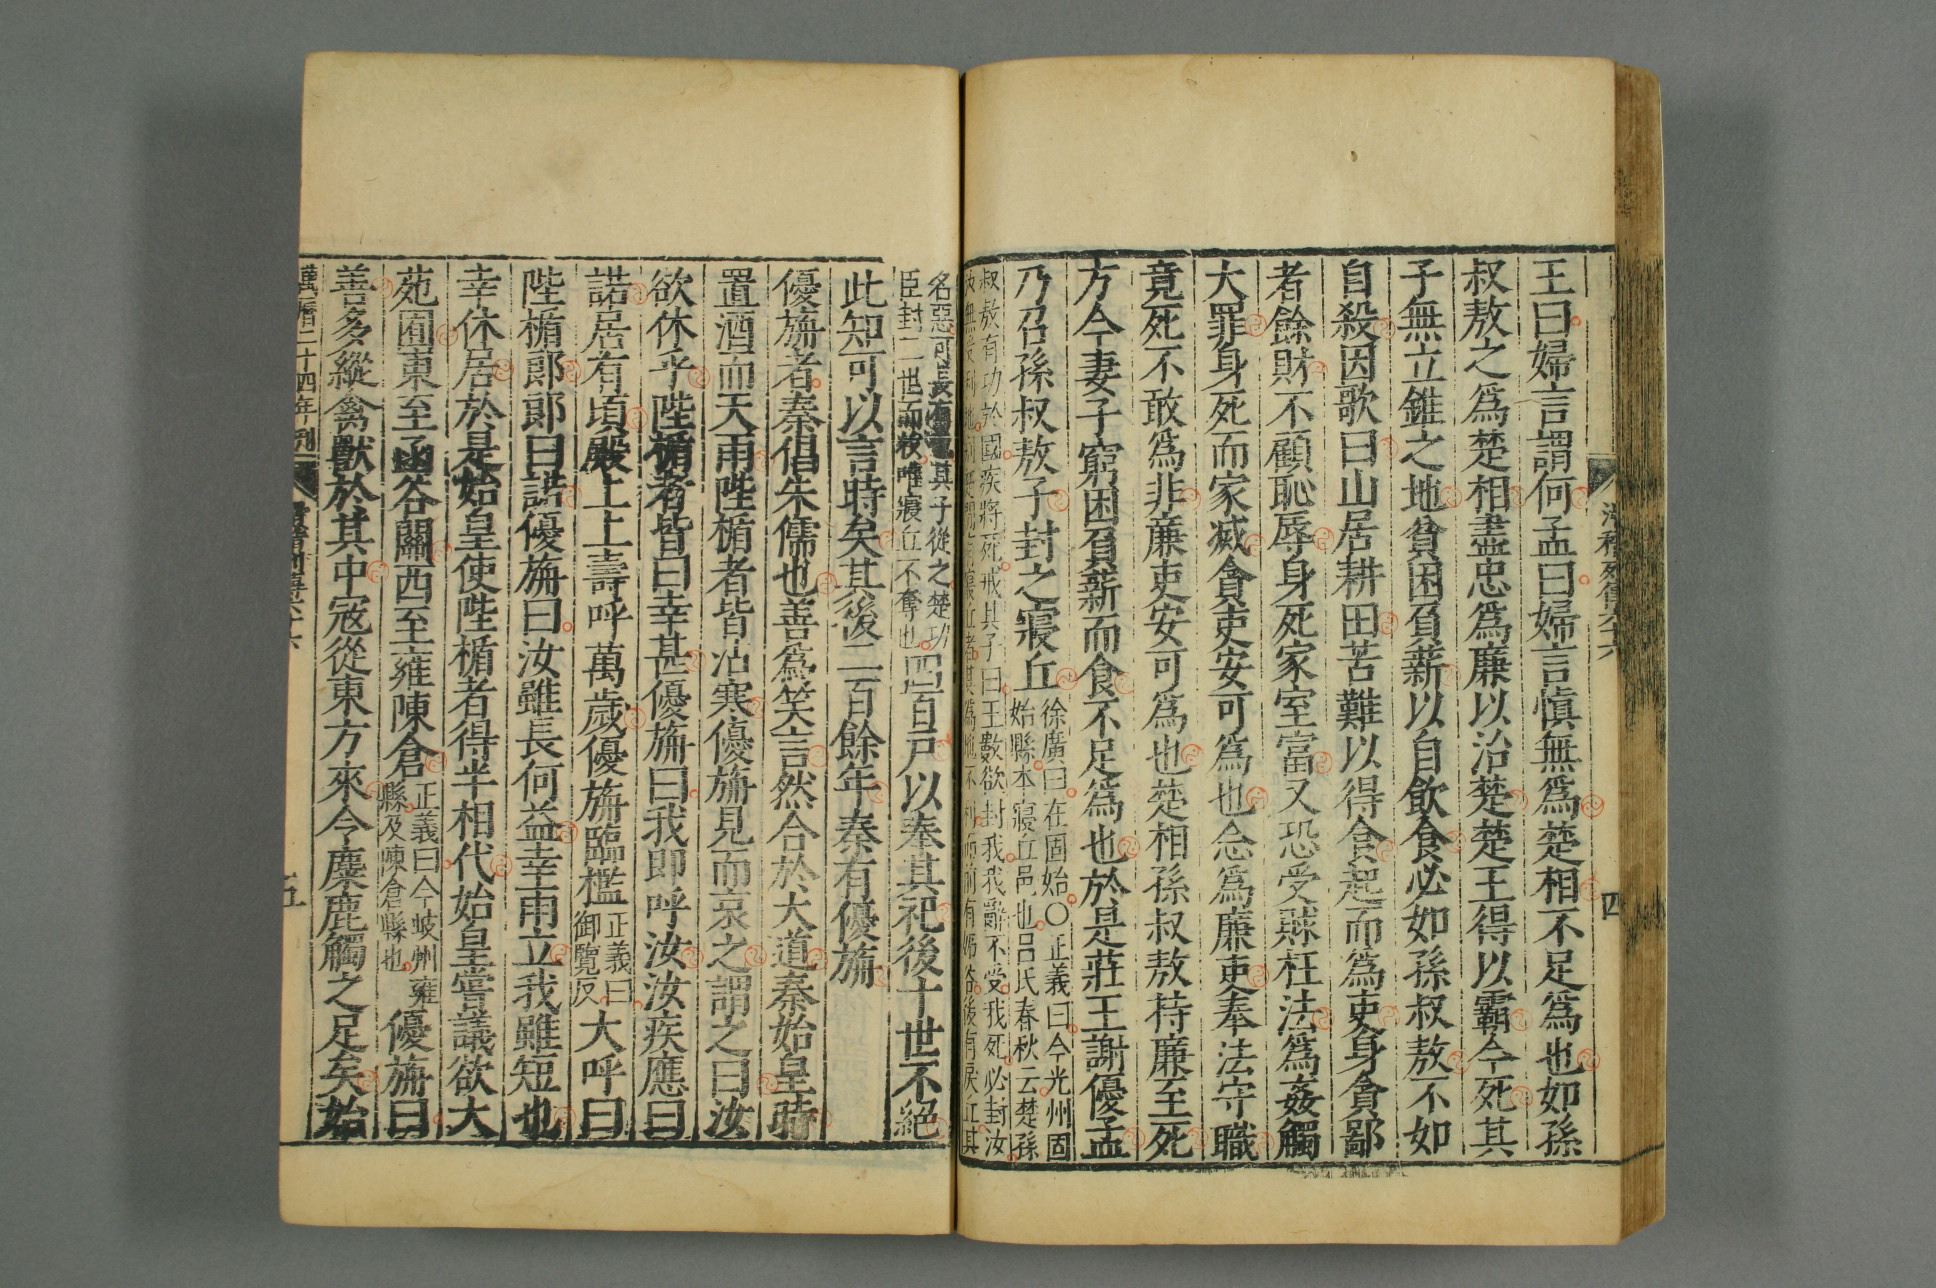 王曰婦言謂何孟曰婦言慎無爲楚相不足爲也如孫
叔敖之爲楚相盡忠爲廉以治楚楚王得以霸今死其
子無立錐之地貧困負薪以自飲食必如孫叔敖不如
自殺因歌曰山居耕田苦難以得食起而爲吏身貪鄙
者餘財不顧恥辱身死家室富又恐受賕枉法爲姦觸
大罪身死而家滅貪吏安可爲也念爲廉吏奉法守職
竟死不敢爲非廉吏安可爲也楚相孫叔敖持廉至死
方今妻子窮困負薪而食不足爲也於是莊王謝優孟
乃召孫叔敖子封之寢丘
徐廣曰在固始〇正義曰今光州固
始縣本寢丘邑也呂氏春秋云楚孫
叔敖有功於國疾將死戒其子曰王數欲封我我辭不受我死必封汝
名惡可長有其子從之楚功
臣封二世而收唯寢丘不奪也
四百戸以奉其祀後十世不絕
此知可以言時矣其後二百餘年秦有優旃
優旃者秦倡朱儒也善爲笑言然合於大道秦始皇時
置酒而天雨陛楯者皆沾寒優旃見而哀之謂之曰汝
欲休乎陛楯者皆曰幸甚優旃曰我即呼汝汝疾應曰
諾居有頃殿上上壽呼萬歲優旃臨檻
正義曰
御覽反
大呼曰
陛楯郎郎曰諾優旃曰汝雖長何益幸雨立我雖短也
幸休居於是始皇使陛楯者得半相代始皇嘗議欲大
苑囿東至函谷關西至雍陳倉
正義曰今岐州雍
縣及陳倉縣也
優旃曰
善多縱禽獸於其中寇從東方來令麋鹿觸之足矣始
萬曆二十四年刊
五
四